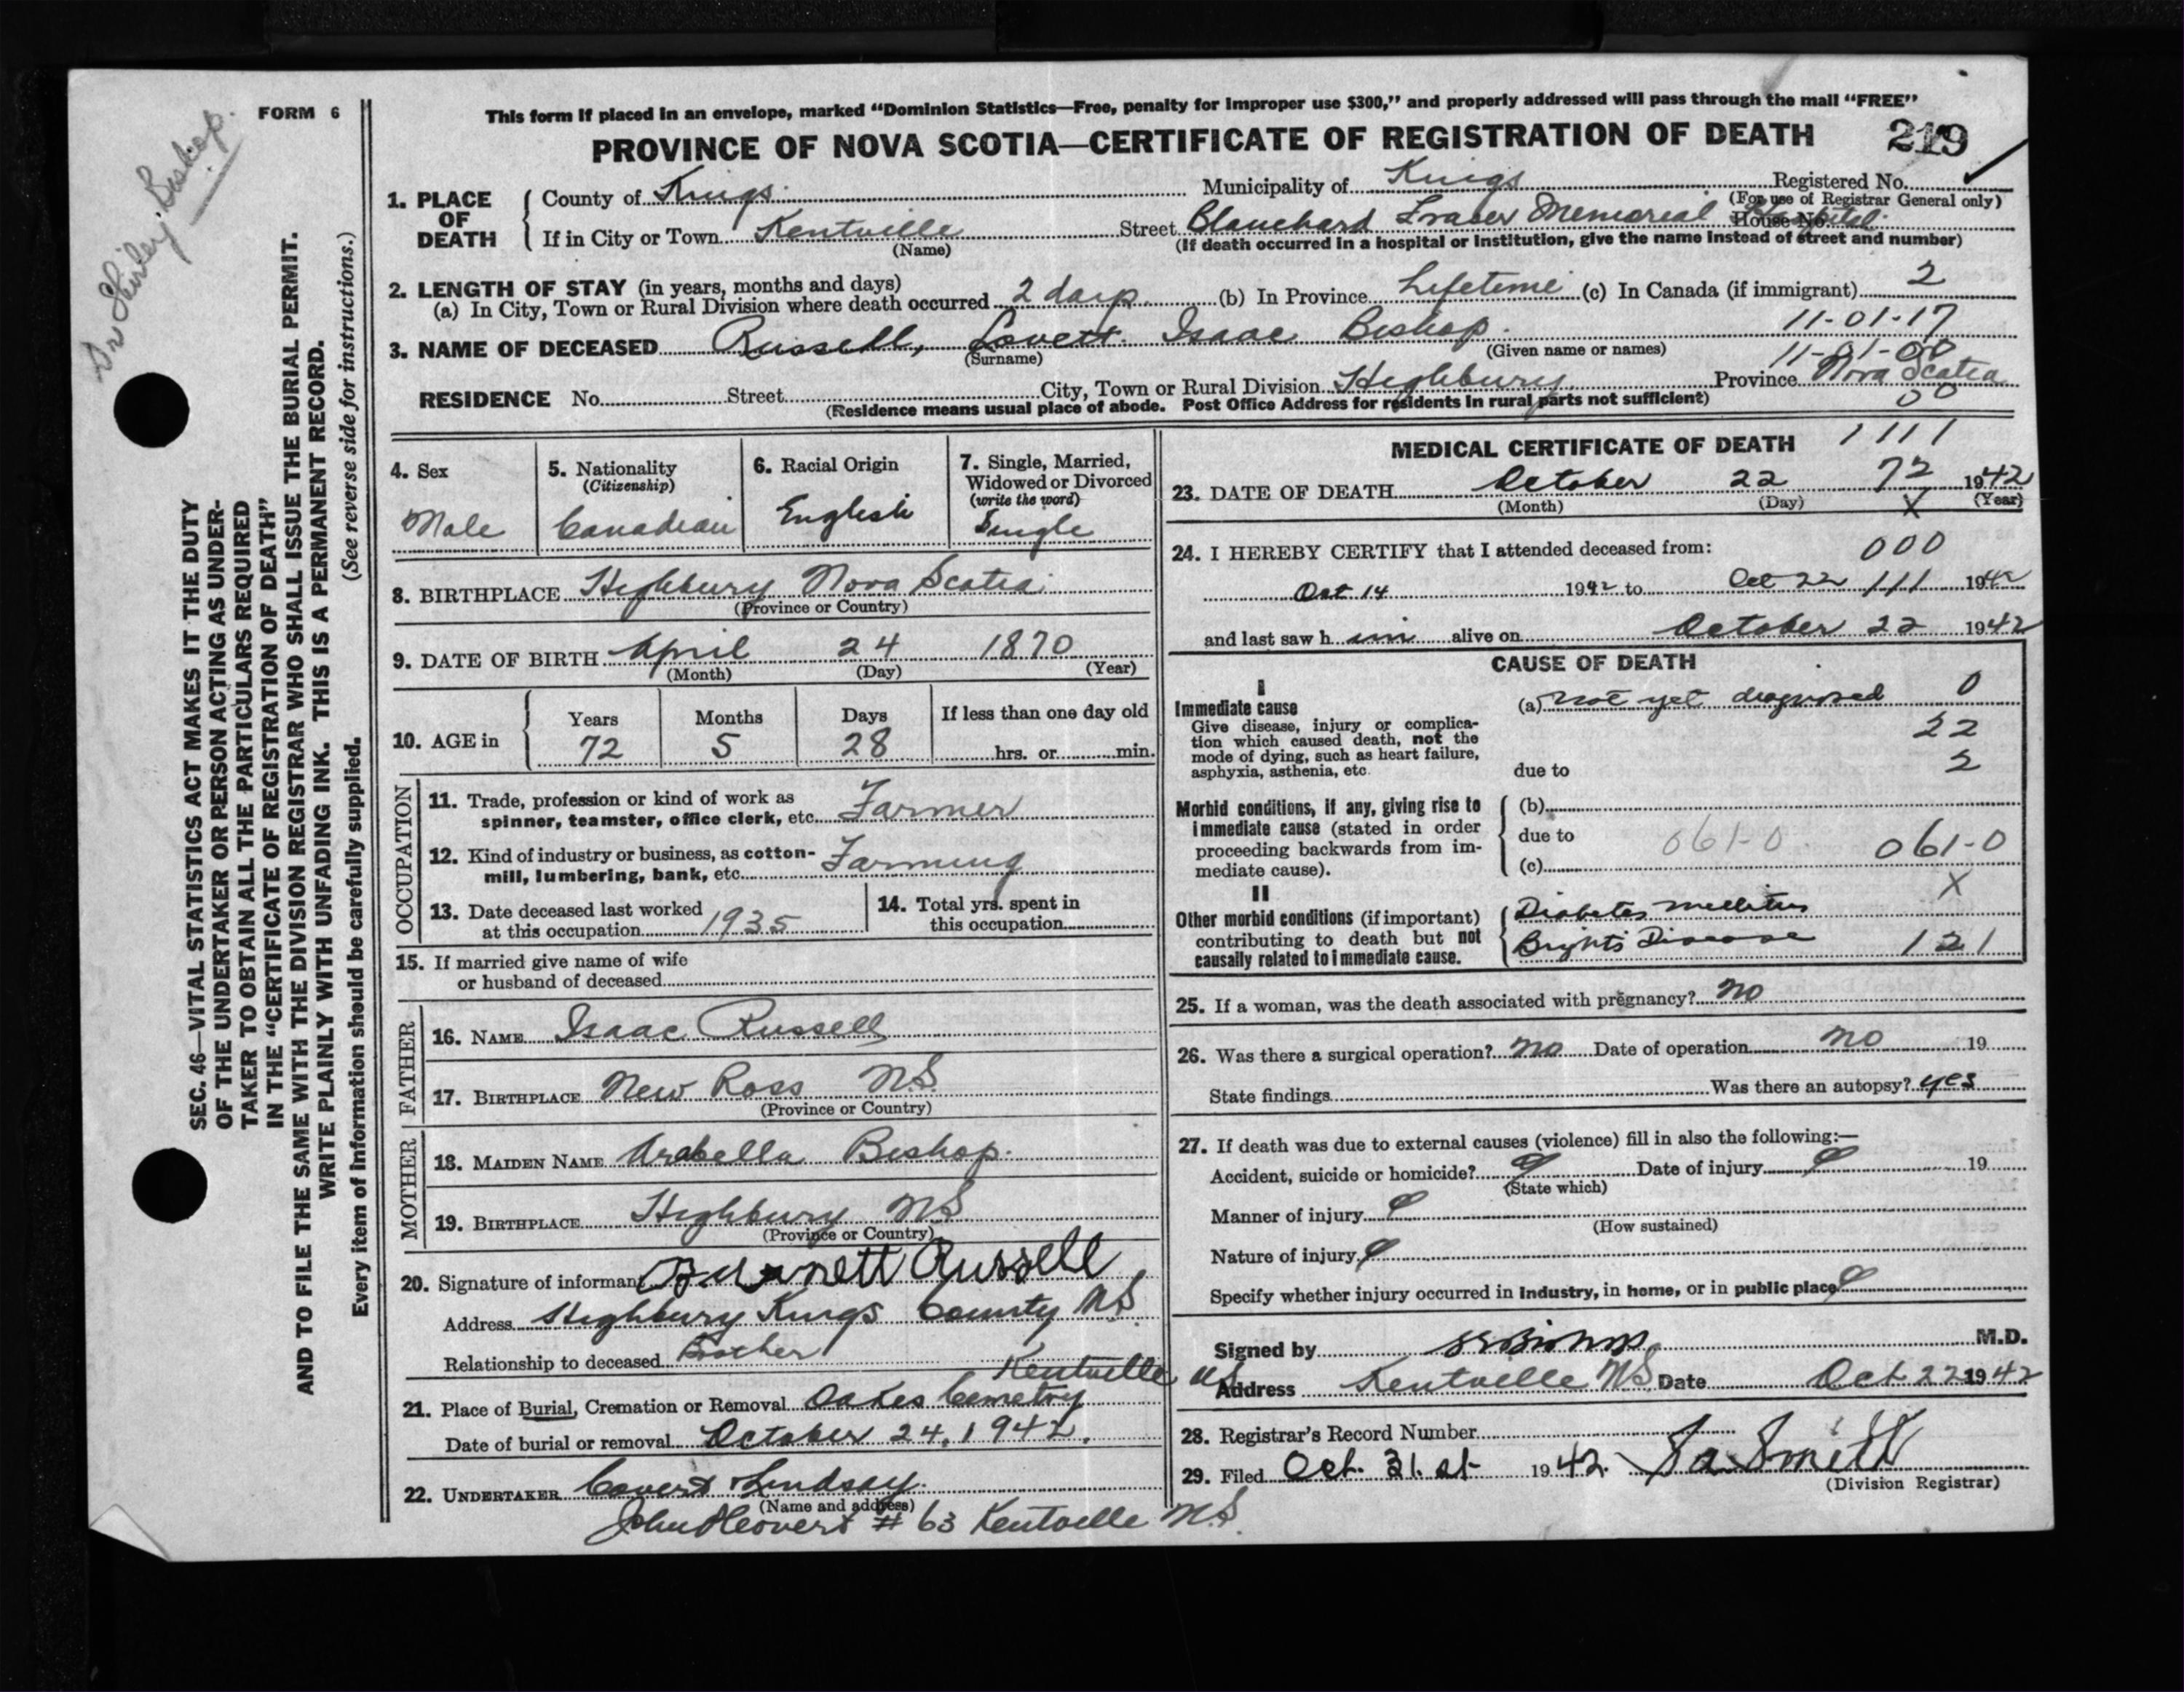 Dr Shirley Bishop.
FORM 6
SEC. 46—VITAL STATISTICS ACT MAKES IT THE DUTY
OF THE UNDERTAKER OR PERSON ACTING AS UNDER-
TAKER TO OBTAIN ALL THE PARTICULARS REQUIRED
IN THE "CERTIFICATE OF REGISTRATION OF DEATH"
AND TO FILE THE SAME WITH THE DIVISION REGISTRAR WHO SHALL ISSUE THE BURIAL PERMIT.
WRITE PLAINLY WITH UNFADING INK. THIS IS A PERMANENT RECORD.
Every item of information should be carefully supplied. (See reverse side for instructions.)
This form if placed in an envelope, marked "Dominion Statistics—Free, penalty for improper use $300," and properly addressed will pass through the mail "FREE"
PROVINCE OF NOVA SCOTIA—CERTIFICATE OF REGISTRATION OF DEATH 219
1. PLACE OF DEATH
County of Kings. Municipality of Kings Registered No.
(For use of Registrar General only)
If in City or Town Kentville Street Blanchard Fraser Memorial Hospital. House No.
(Name) (If death occurred in a hospital or institution, give the name instead of street and number)
2. LENGTH OF STAY (in years, months and days)
(a) In City, Town or Rural Division where death occurred 2 days. (b) In Province Lifetime (c) In Canada (if immigrant) 2
11-01-17
3. NAME OF DECEASED Russell, Lovett. Isaac Bishop.
(Surname) (Given name or names) 11-01-00
RESIDENCE No. Street City, Town or Rural Division Highbury. Province Nova Scotia
(Residence means usual place of abode. Post Office Address for residents in rural parts not sufficient) 00
4. Sex
Male
5. Nationality
(Citizenship)
Canadian
6. Racial Origin
English
7. Single, Married,
Widowed or Divorced
(write the word)
Single
8. BIRTHPLACE Highbury Nova Scotia.
(Province or Country)
9. DATE OF BIRTH April 24 1870
(Month) (Day) (Year)
10. AGE in
Years Months Days If less than one day old
72 5 28 hrs. or min.
OCCUPATION
11. Trade, profession or kind of work as
spinner, teamster, office clerk, etc. Farmer
12. Kind of industry or business, as cotton-
mill, lumbering, bank, etc. Farming
13. Date deceased last worked
at this occupation 1935
14. Total yrs. spent in
this occupation
15. If married give name of wife
or husband of deceased
FATHER
16. NAME Isaac Russell
17. BIRTHPLACE New Ross N.S.
(Province or Country)
MOTHER
18. MAIDEN NAME Arabella Bishop.
19. BIRTHPLACE Highbury NS
(Province or Country)
20. Signature of informant Burnett Russell
Address Highbury Kings County NS
Relationship to deceased Brother
Kentville NS
21. Place of Burial, Cremation or Removal Oakes Cemetry
Date of burial or removal October 24, 1942.
22. UNDERTAKER Covert Lindsay.
(Name and address)
John H Covert # 63 Kentville N.S.
MEDICAL CERTIFICATE OF DEATH 1111
23. DATE OF DEATH October 22 72 1942
(Month) (Day) X (Year)
24. I HEREBY CERTIFY that I attended deceased from: 000
Oct 14 1942 to Oct 22 111 1942
and last saw h im alive on October 22 1942
CAUSE OF DEATH
I
Immediate cause
Give disease, injury or complica-
tion which caused death, not the
mode of dying, such as heart failure,
asphyxia, asthenia, etc.
(a) Not yet diagnosed 0
22
due to 2
Morbid conditions, if any, giving rise to
immediate cause (stated in order
proceeding backwards from im-
mediate cause).
(b)
due to 061-0 061-0
(c)
X
II
Other morbid conditions (if important)
contributing to death but not
causally related to immediate cause.
Diabetes mellitus
Brights Disease 121
25. If a woman, was the death associated with pregnancy? No
26. Was there a surgical operation? No Date of operation No 19
State findings Was there an autopsy? yes
27. If death was due to external causes (violence) fill in also the following:—
Accident, suicide or homicide? Date of injury 19
(State which)
Manner of injury
(How sustained)
Nature of injury
Specify whether injury occurred in industry, in home, or in public place
Signed by M.D.
Address Kentville NS Date Oct 22 1942
28. Registrar's Record Number
29. Filed Oct. 31. st 1942. Smith
(Division Registrar)